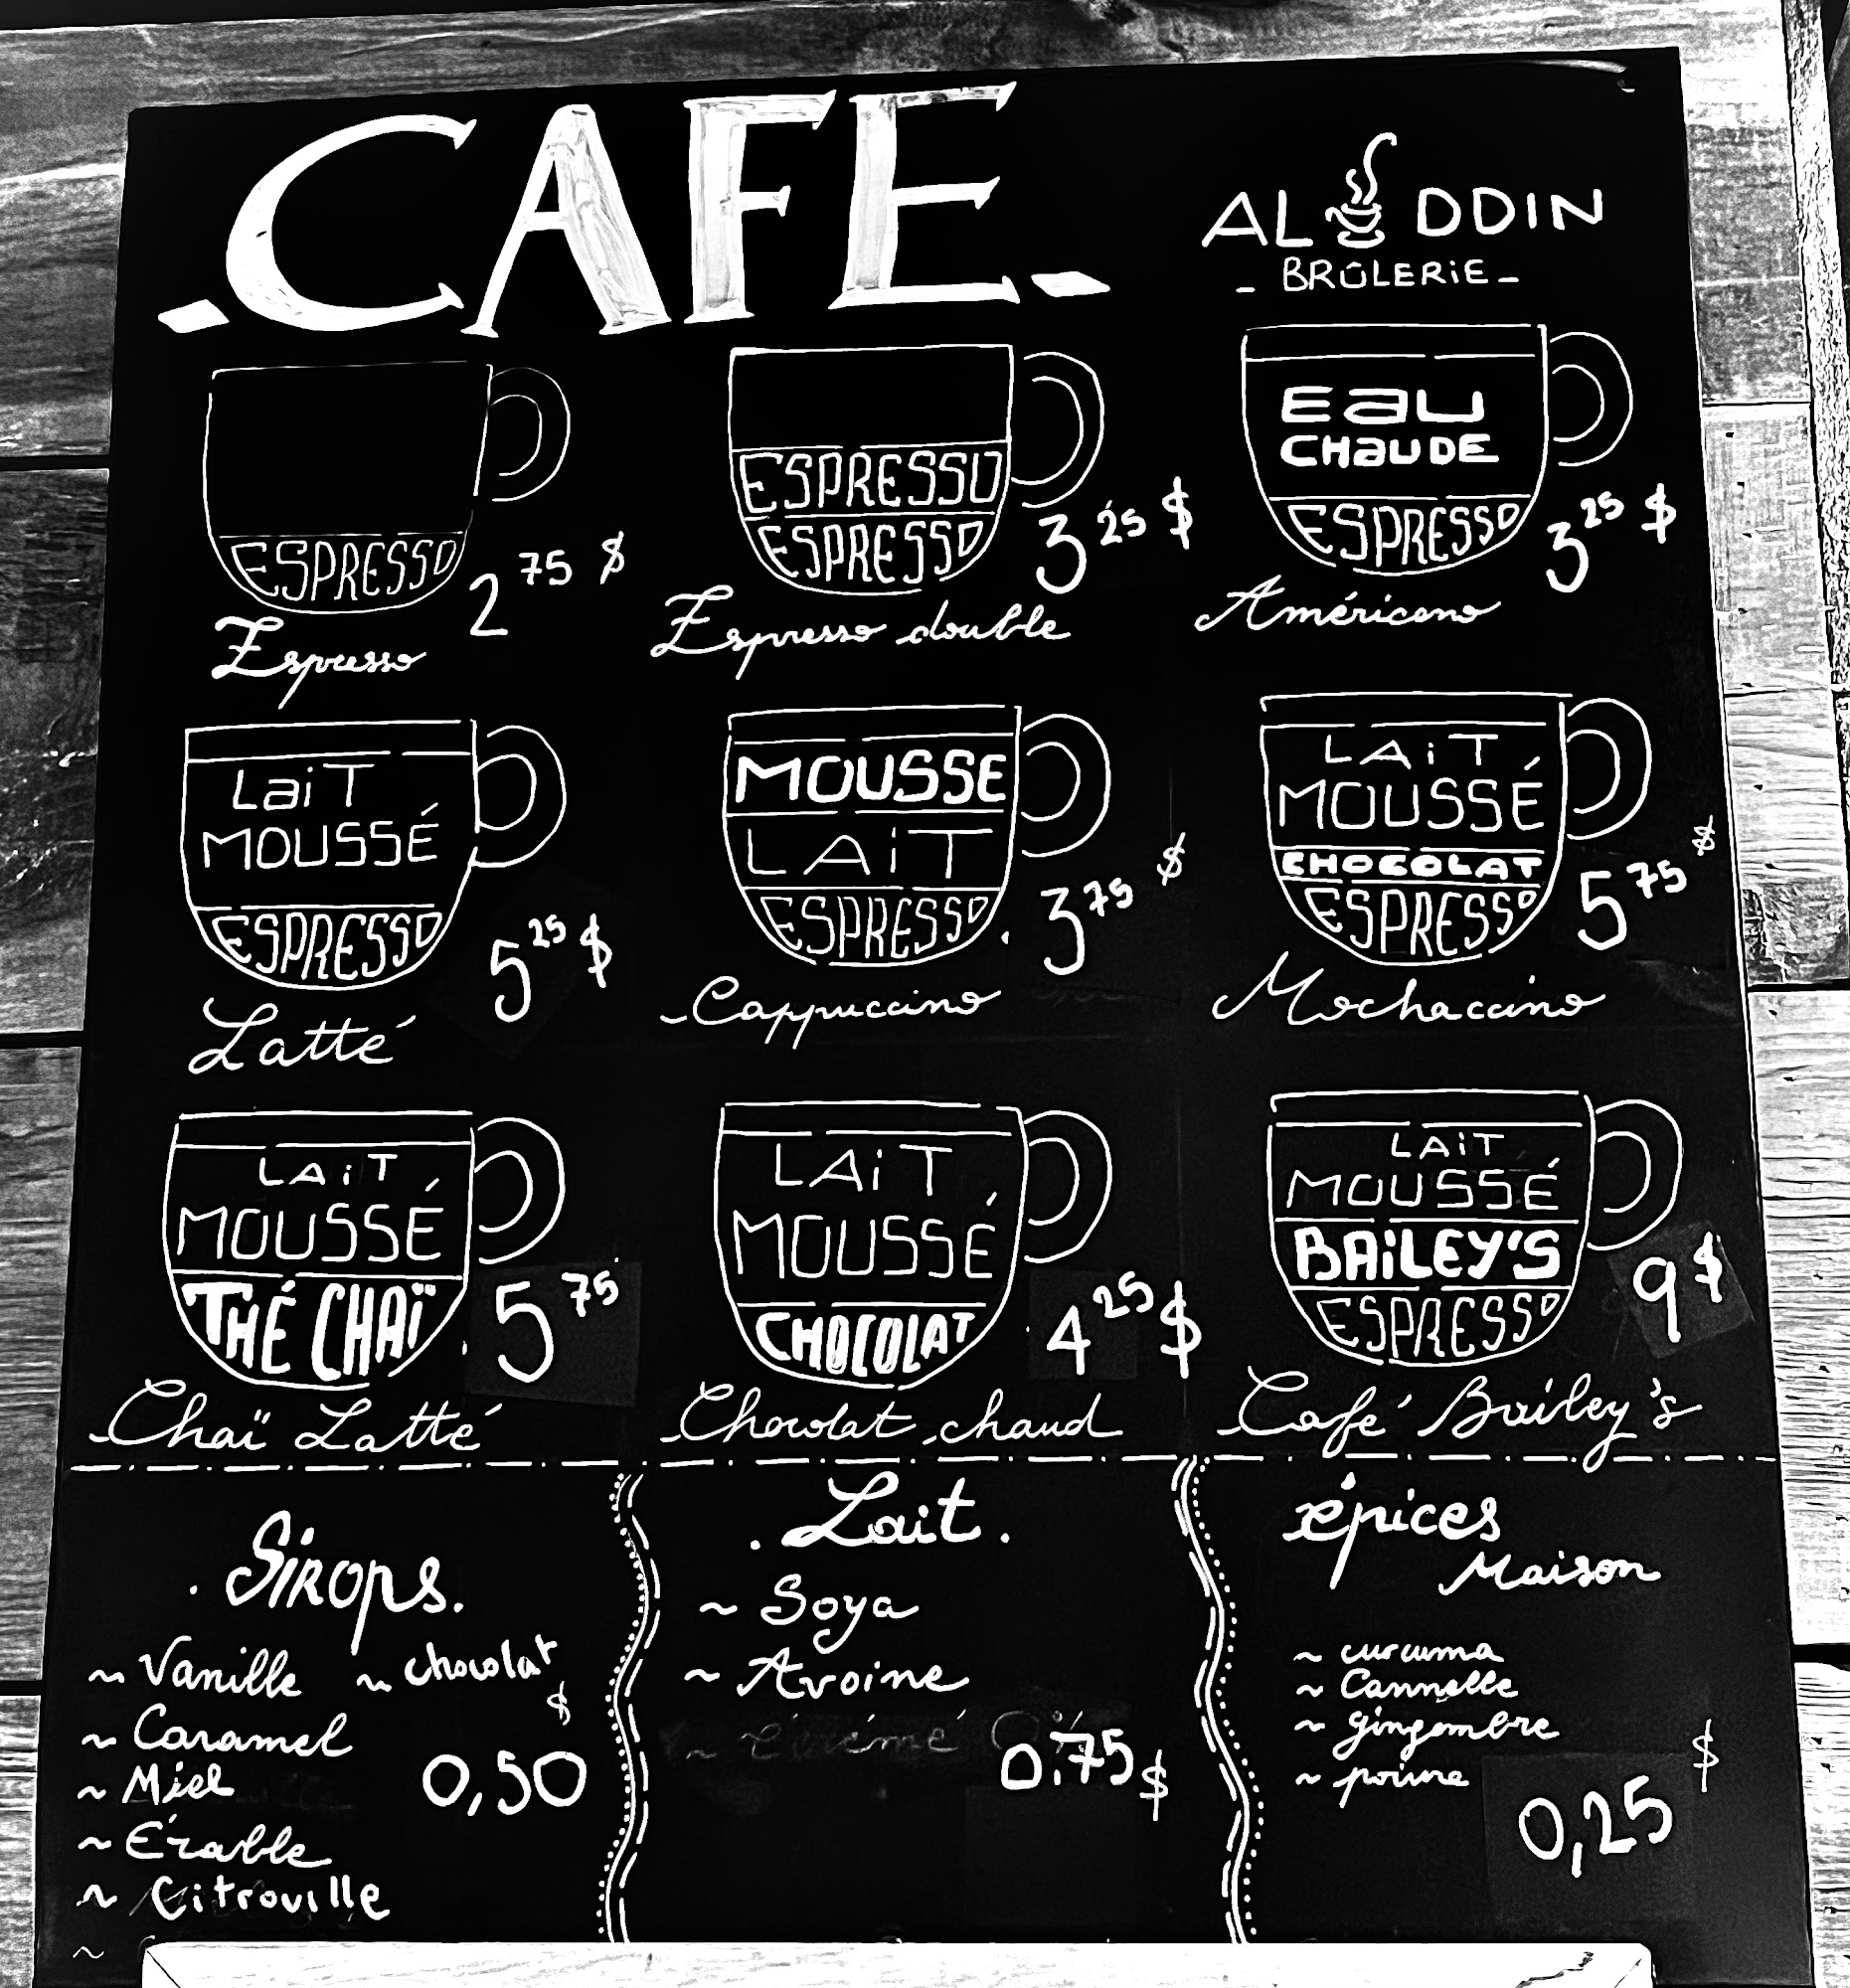 CAFE
AL DDIN
- BRÛLERiE -
ESPRESSO
2 75 $
Espresso
ESPRESSO
ESPRESSO
3 25 $
Espresso double
Eau
CHAUDE
ESPRESSO
3 25 $
Américano
LaiT
MOUSSÉ
ESPRESSO
5 25 $
Latté
MOUSSE
LAiT
ESPRESSO
3 75 $
Cappuccino
LAiT
MOUSSÉ
CHOCOLAT
ESPRESSO
5 75 $
Mochaccino
LAiT
MOUSSÉ
THÉ CHAÏ
5 75
Chaï Latté
LAiT
MOUSSÉ
CHOCOLAT
4 25 $
Chocolat chaud
LAiT
MOUSSÉ
BAiLEY'S
ESPRESSO
9 $
Café Bailey's
. Sirops.
~ Vanille ~ chocolat
~ Caramel
~ Miel
~ Érable
~ Citroville
0,50 $
. Lait .
~ Soya
~ Avoine
0.75 $
épices
Maison
~ curcuma
~ Cannelle
~ gingembre
~ poivre
0,25 $